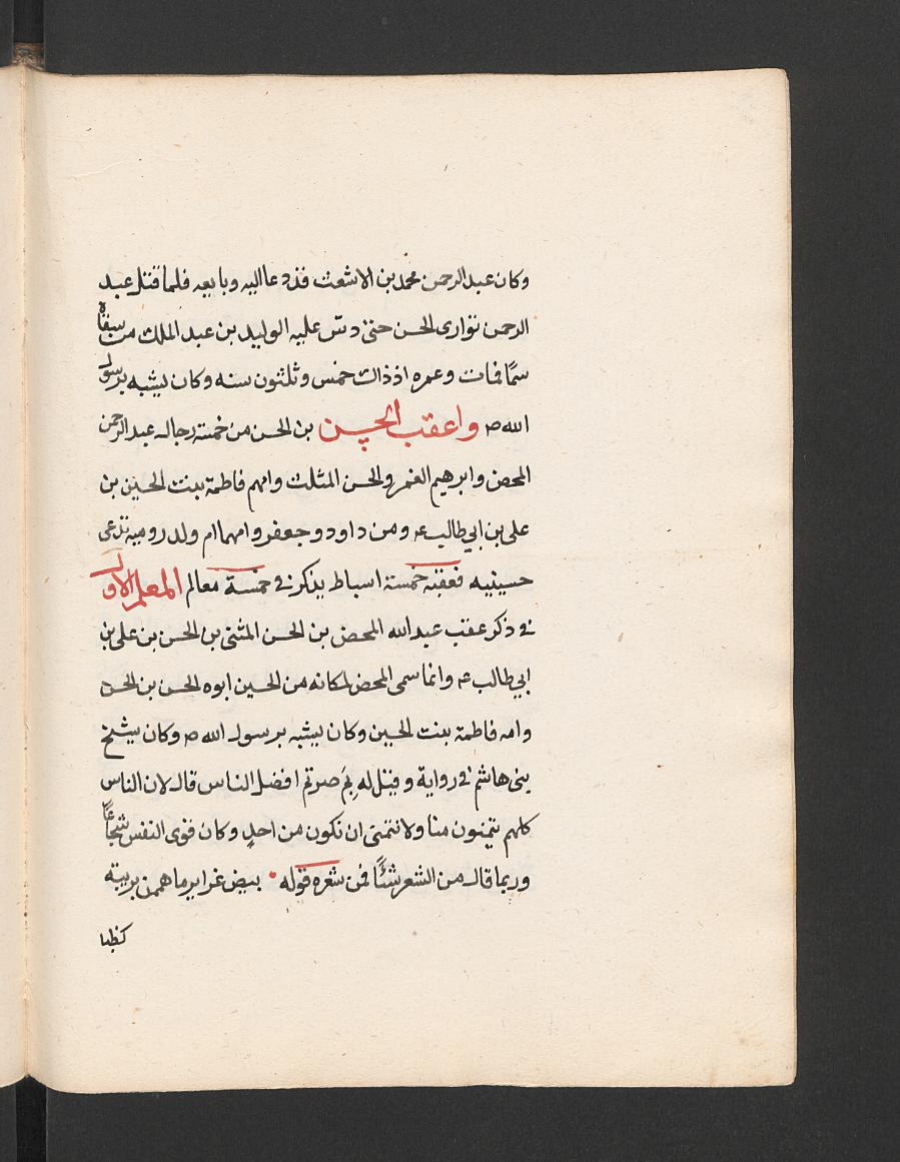 وكان عبد الرحمن محمد بن الاشعث قد دعا اليه وبايعه فلما قتل عبد
الرحمن توارى الحسن حتى دس عليه الوليد بن عبد الملك من سقاه
سمًا فمات وعمره اذ ذاك خمس وثلثون سنه وكان يشبه برسول
الله ص واعقب الحسن بن الحسن من خمسة رجال عبد الرحمن
المحض وابرهيم الغمر والحسن المثلث وامهم فاطمة بنت الحسين بن
على بن ابي طالب ع ومن داود وجعفر وامهما ام ولد روميه تدعى
حسينيه فعقبه خمسة اسباط يذكر في خمسة معالم المعلم الاول
في ذكر عقب عبد الله المحض بن الحسن المثنى بن الحسن بن على بن
ابي طالب ع وانما سمى المحض لمكانه من الحسين ابوه الحسن بن الحسن
وامه فاطمة بنت الحسين وكان يشبه برسول الله ص وكان شيخ
بنى هاشم في رواية وقيل له بِمَ صرتم افضل الناس قال لان الناس
كلهم يتمنون منا ولا نتمنى ان نكون من احدٍ وكان قوى النفس شجاعًا
وربما قال من الشعر شئًا فمن شعره قوله بيض غراير ما هممن بريبة
كظبا